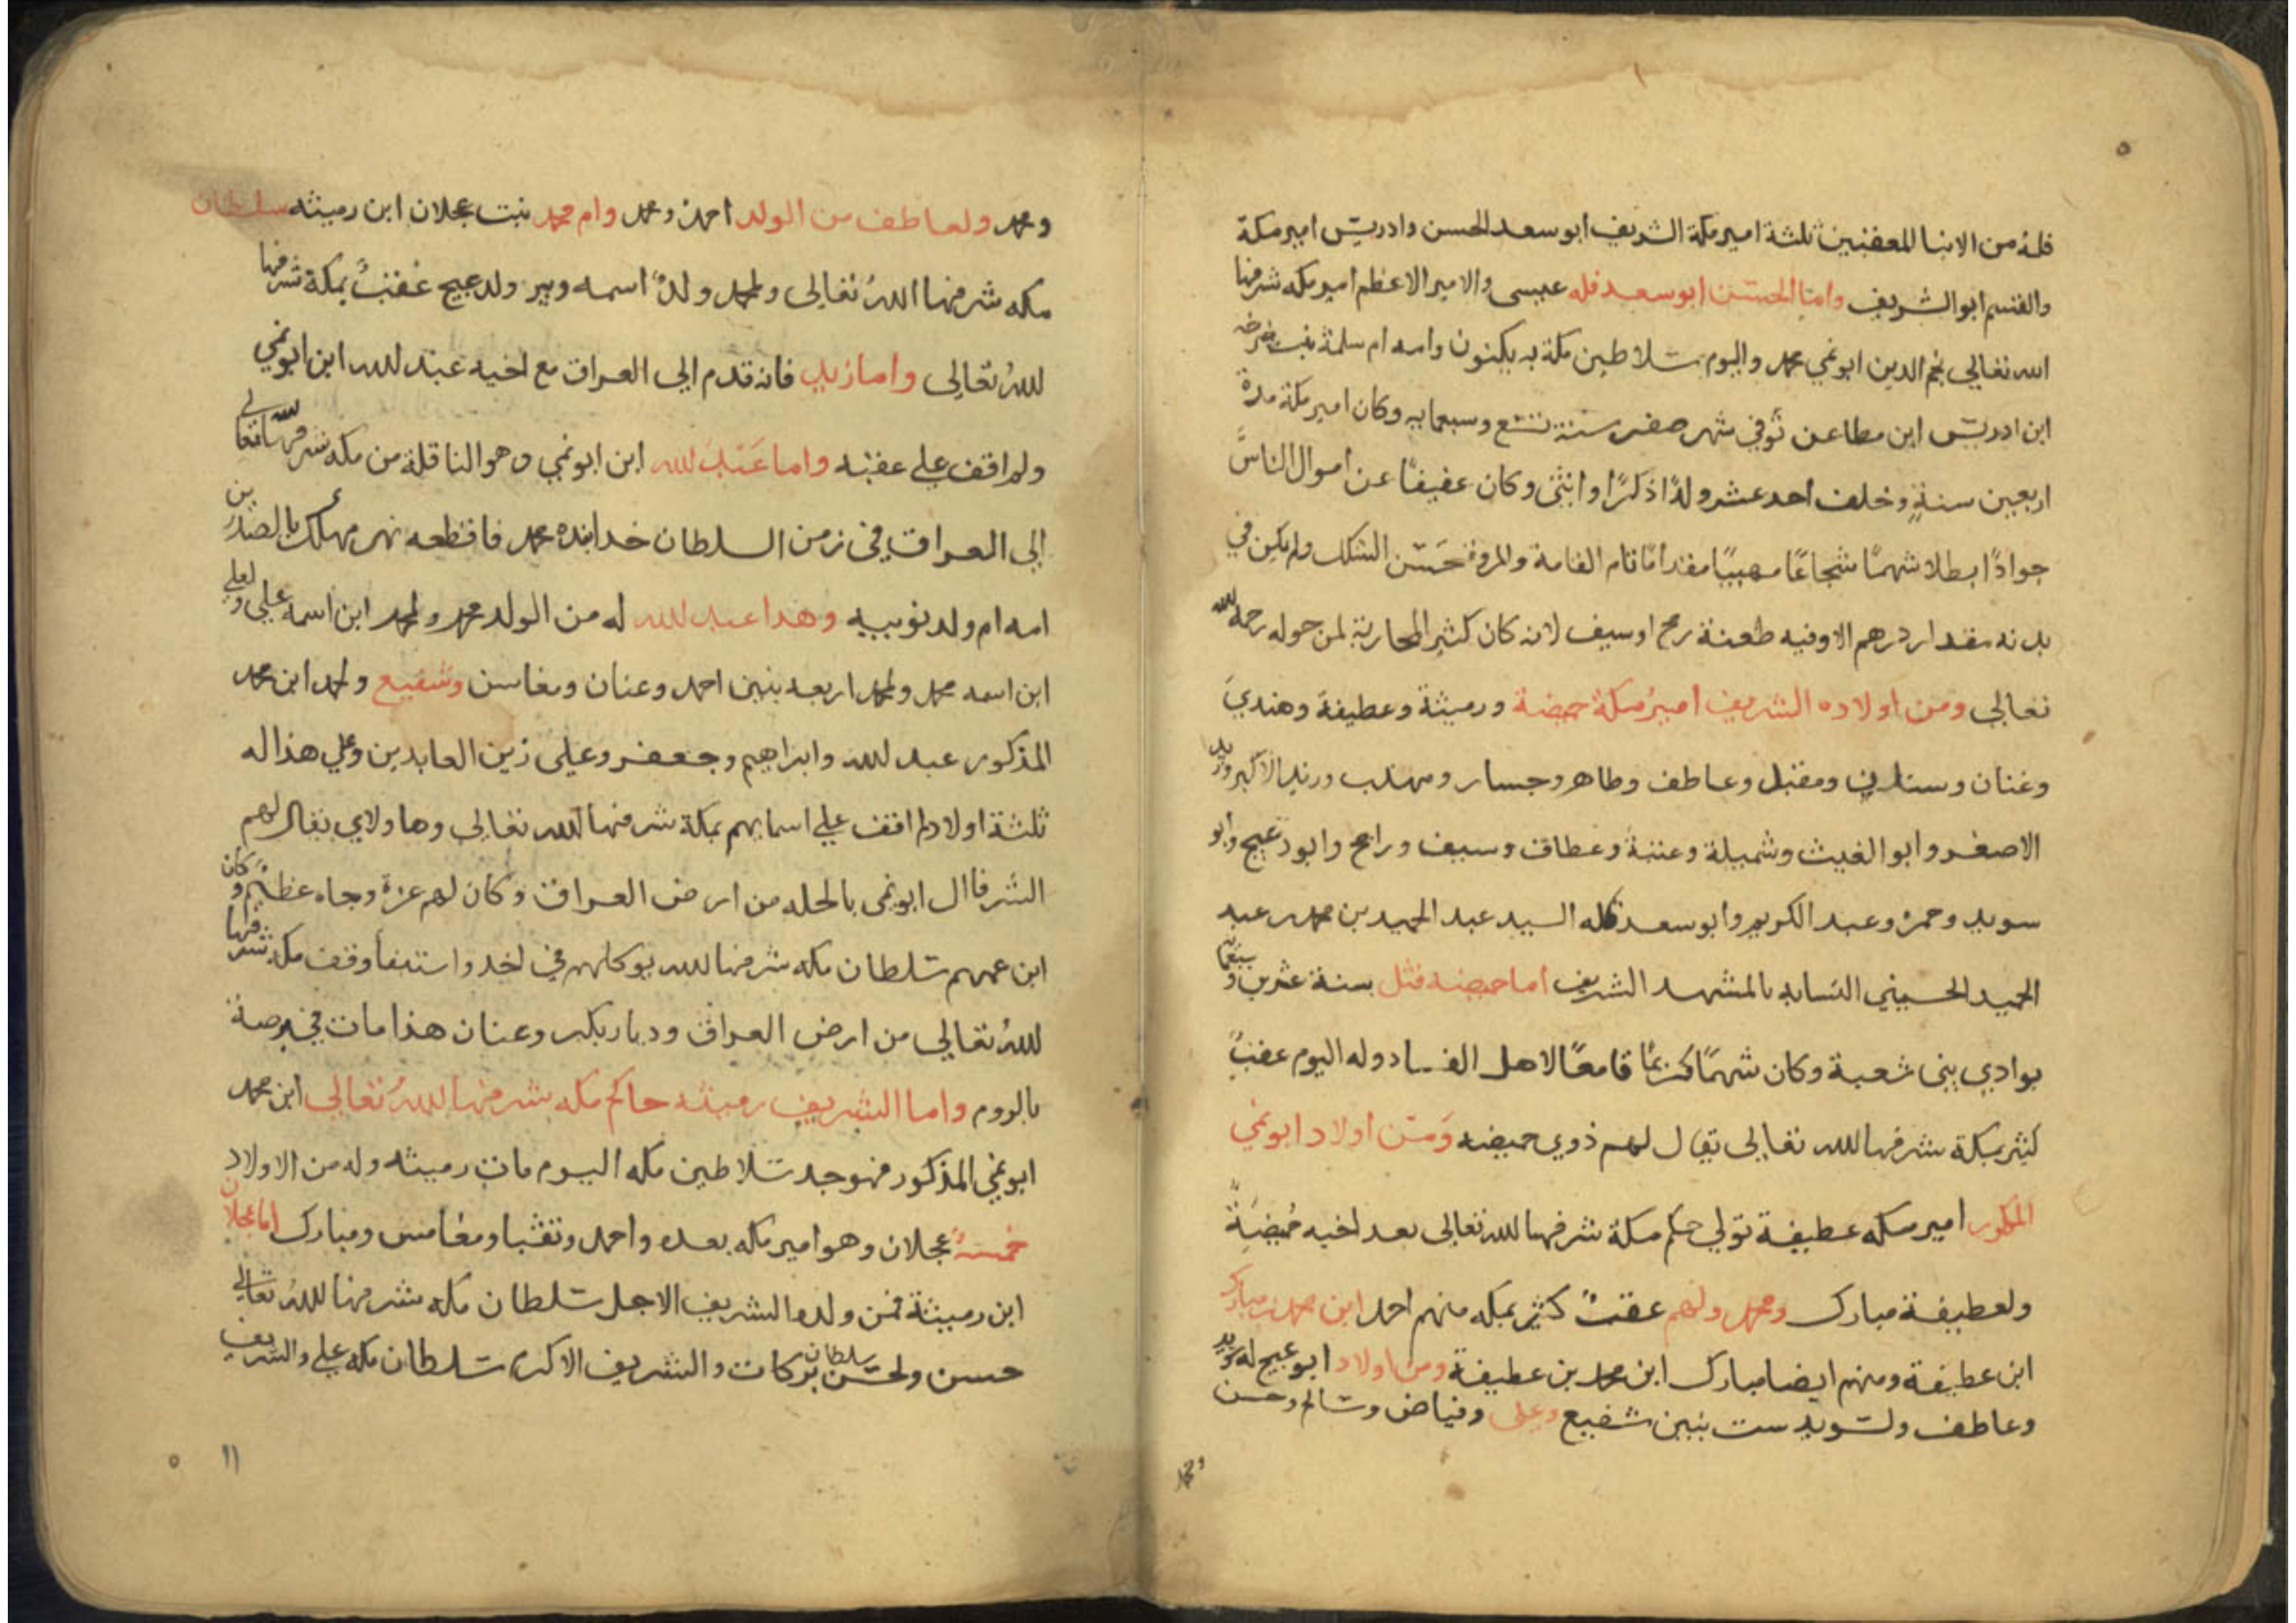 فله من الابنا المعقبين ثلثة امير مكة الشريف ابو سعد الحسن وادريس امير مكة
والقسم ابو الشريف واما الحسن ابو سعد فله عيسى والامير الاعظم امير مكه شرفها
الله تعالى نجم الدين ابو نمي محمد واليوم سلاطين مكة به يكنون وامه ام سلمة بنت
ابن ادريس ابن مطاعن توفي شهر صفر سنة تسع وسبعمايه وكان امير مكة مدة
اربعين سنةٍ وخلف احد عشر ولدًا ذكرًا وانثى وكان عفيفًا عن اموال الناس
جوادًا بطلا شهمًا شجاعًا مهيبًا مقدامًا تام القامة والمروة حسن الشكل ولم يكن في
بدنه مقدار درهم الا وفيه طعنة رمح او سيف لانه كان كثير المحاربة لمن حوله رحمه الله
تعالى ومن اولاده الشريف امير مكة حميضة ورميثة وعطيفة وهندي
وعنان وستان ومقبل وعاطف وطاهر وجسار ومهلب وزيد الاكبر وزيد
الاصغر وابو الغيث وشميلة وعننة وعطاف وسيف وراجح وابو دعيج وابو
سويد وحمزه وعبد الكريم وابو سعد قاله السيد عبد الحميد بن محمد بن عبد
الحميد الحسيني النسابه بالمشهد الشريف اما حميضه قتل بسنة عشرين و
بوادي بنى شعبة وكان شهمًا كريمًا قامعًا لاهل الفساد وله اليوم عقبٌ
كثير بمكة شرفها الله تعالى يقال لهم ذوي حميضه ومن اولاد ابو نمي
المذكور امير مكه عطيفة تولي حكم مكة شرفها الله تعالى بعد اخيه حميضة
ولعطيفة مبارك ومحمد ولهم عقبٌ كثير بمكه منهم احمد ابن محمد بن مبارك
ابن عطيفة ومنهم ايضا مبارك ابن محمد بن عطيفة ومن اولاد ابو عيج له سويد
وعاطف ولسويد ست بنين شفيع وعلى وفياض وسالم وحسن
ومحمد
ومحمد ولعاطف من الولد احمد ومحمد وام محمد بنت عجلان ابن رميثه سلطان
مكه شرفها اللهُ تعالى ولمحمد ولدٌ اسمه وبير ولدعيج عقبٌ بمكة شرفها
اللهُ تعالى واما زيد فانه قدم الى العراق مع اخيه عبد الله ابن ابو نمي
ولم اقف على عقبه واما عبد الله ابن ابو نمي وهو الناقلة من مكه شرفها الله تعالى
الى العراق في زمن السلطان خدابنده محمد فاقطعه نهر مهلك بالصدرين
امه ام ولد نوبيه وهذا عبد الله له من الولد محمد ولمحمد ابن اسمه على ولعلي
ابن اسمه محمد ولمحمد اربعه بنين احمد وعنان ومغامس وشفيع ولمحمد ابن محمد
المذكور عبد الله وابراهيم وجعفر وعلى زين العابدين وعلي هذا له
ثلثة اولاد لم اقف على اسمايهم بمكة شرفها الله تعالى وهاولاي يقال لهم
الشرفا ال ابو نمى بالحله من ارض العراق وكان لهم عزة وجاه عظيم وكان
ابن عمهم سلطان مكه شرفها الله يوكلهم في اخد واستيفا وقف مكه شرفها
اللهُ تعالى من ارض العراق وديار بكر وعنان هذا مات في برصة
بالروم واما الشريف رميثه حاكم مكه شرفها اللهُ تعالى ابن محمد
ابو نمي المذكور فهو جد سلاطين مكه اليوم مات رميثه وله من الاولاد
خمسةٌ عجلان وهو امير مكه بعده واحمد وثقبا ومغامس ومبارك اما عجلان
ابن رميثة فمن ولده الشريف الاجل سلطان مكه شرفها اللهُ تعالى
حسن ولحسن سلطان بركات والشريف الاكرم سلطان مكه على والشريف
١١